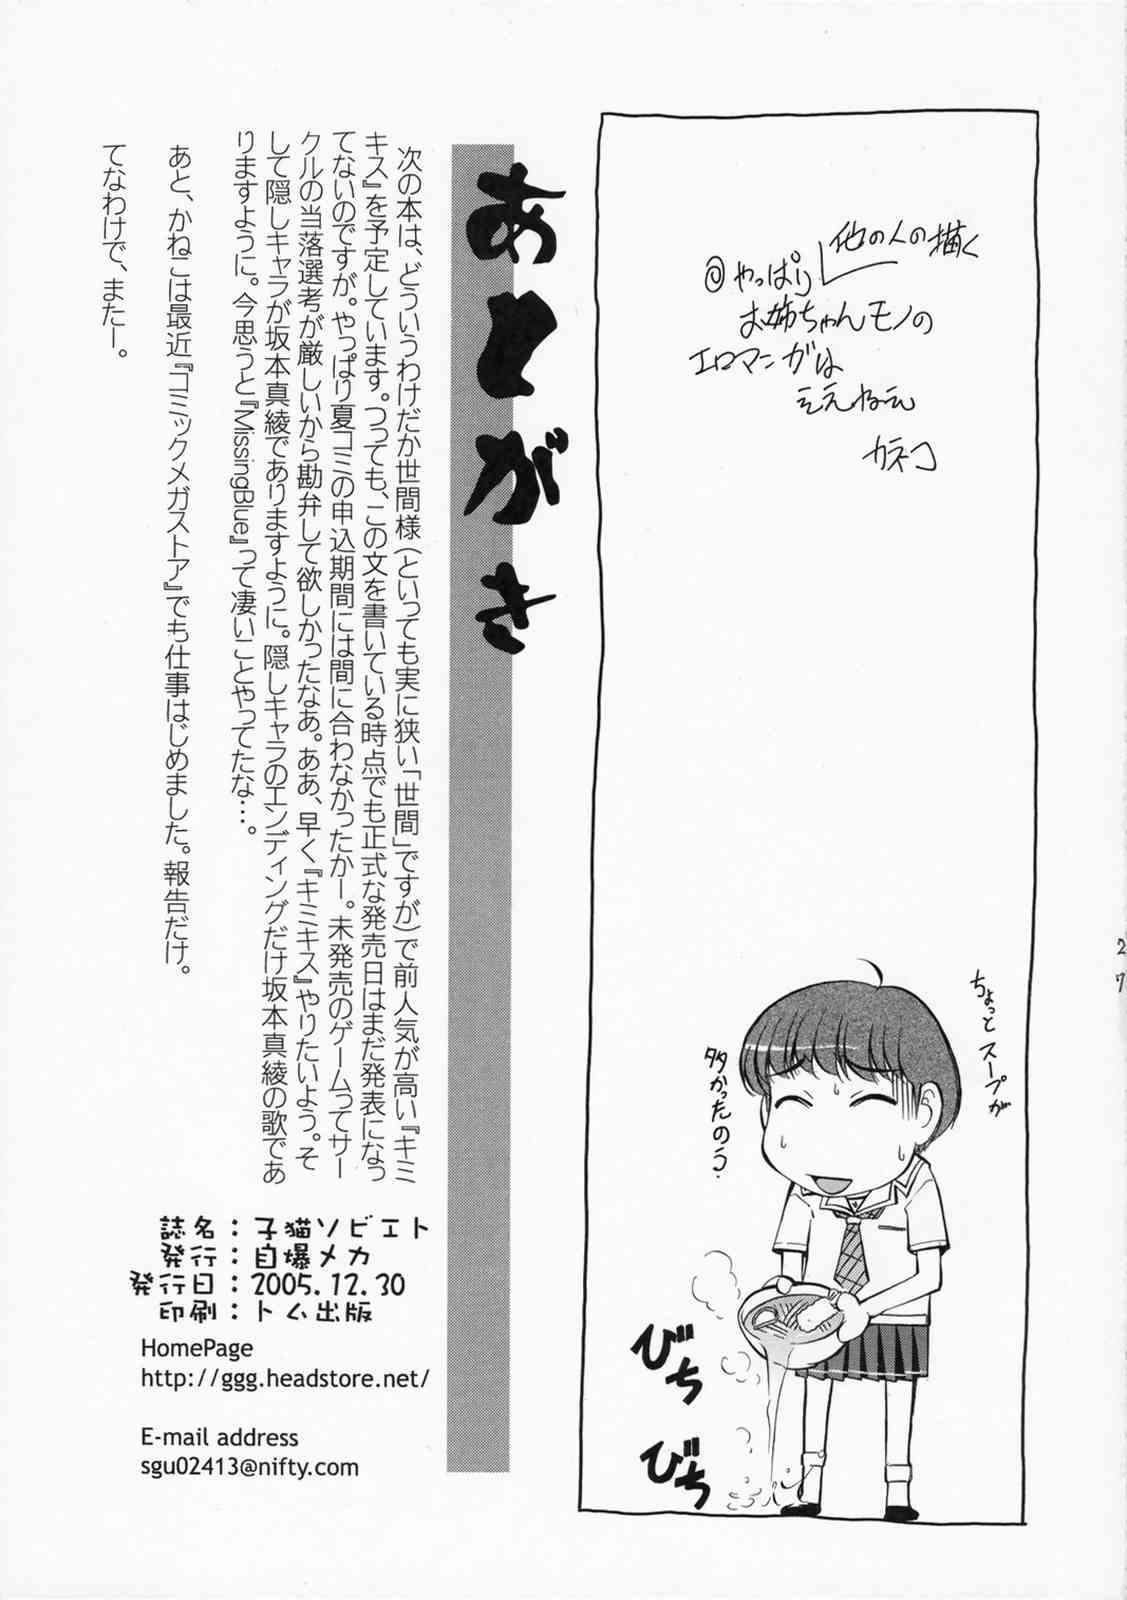 ◎やっぱり他の人の描く
お姉ちゃんモノの
エロマンガは
ええねえ
カネコ
ちょっとスープが
多かったのう.
びち
びち
27
あとがき
次の本は、どういうわけだか世間様(といっても実に狭い「世間」ですが)で前人気が高い『キミ
キス』を予定しています。つっても、この文を書いている時点でも正式な発売日はまだ発表になっ
てないのですが。やっぱり夏コミの申込期間には間に合わなかったかー。未発売のゲームってサー
クルの当落選考が厳しいから勘弁して欲しかったなあ。ああ、早く『キミキス』やりたいよう。そ
して隠しキャラが坂本真綾でありますように。隠しキャラのエンディングだけ坂本真綾の歌であ
りますように。今思うと『MissingBlue』って凄いことやってたな…。
あと、かねこは最近『コミックメガストア』でも仕事はじめました。報告だけ。
てなわけで、またー。
誌名：子猫ソビエト
発行：自爆メカ
発行日：2005.12.30
印刷：トム出版
HomePage
http://ggg.headstore.net/
E-mail address
sgu02413@nifty.com